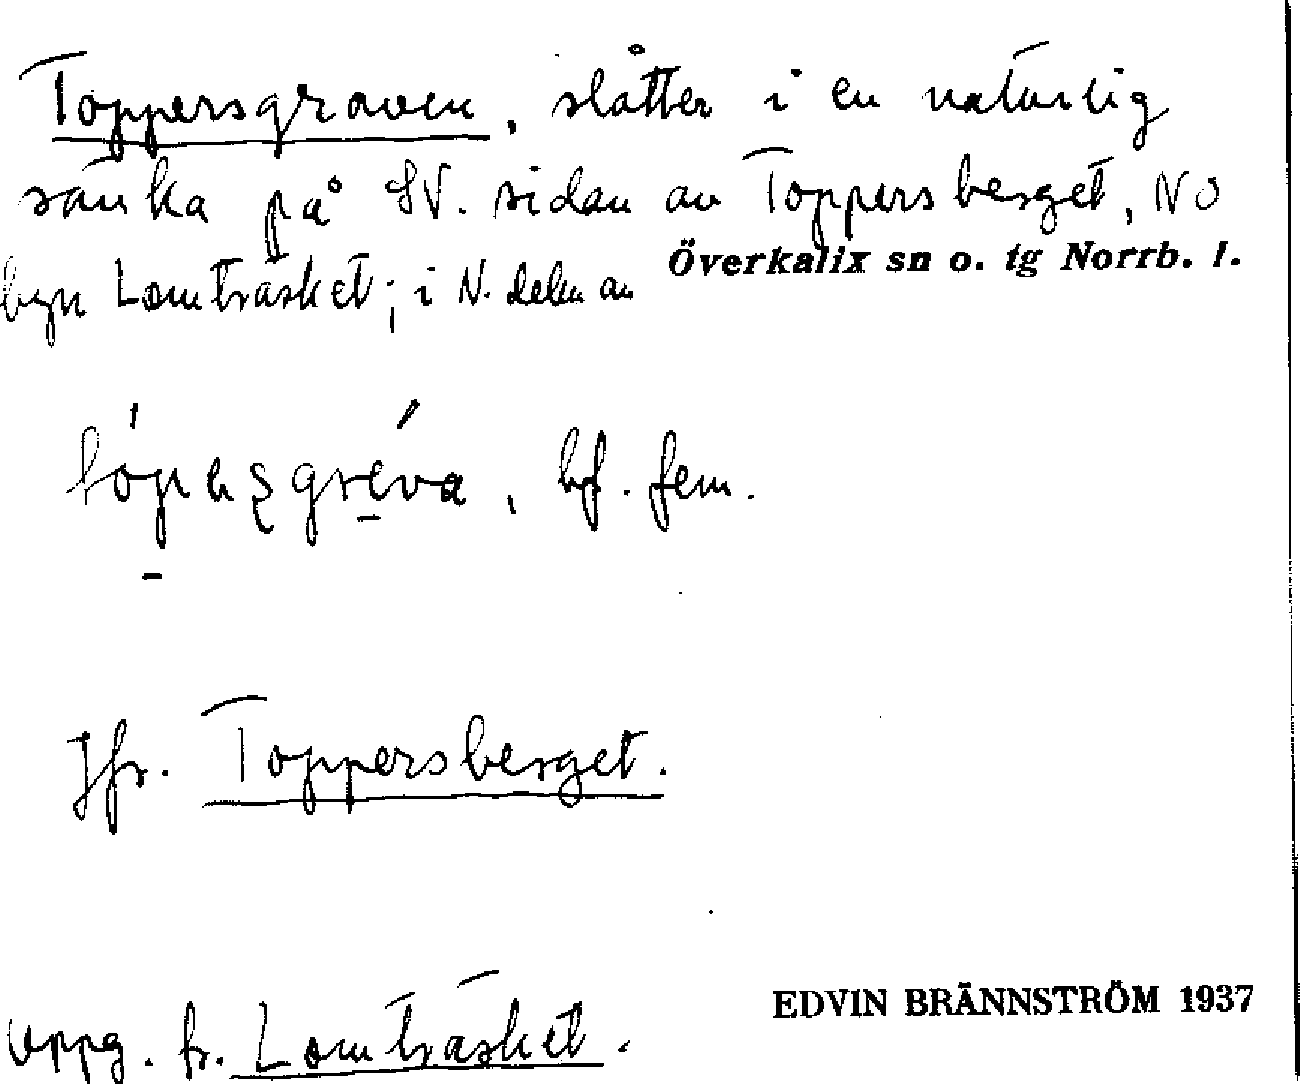 Toppersgraven, slåtter i en naturlig
sänka på SV. sidan av Toppersberget, NO
byn Lomträsket; i N. delen av Överkalix sn o. tg Norrb. l.
bf. fem.
Jfr. Toppersberget.
Uppg. fr. Lomträsket.
EDVIN BRÄNNSTRÖM 1937